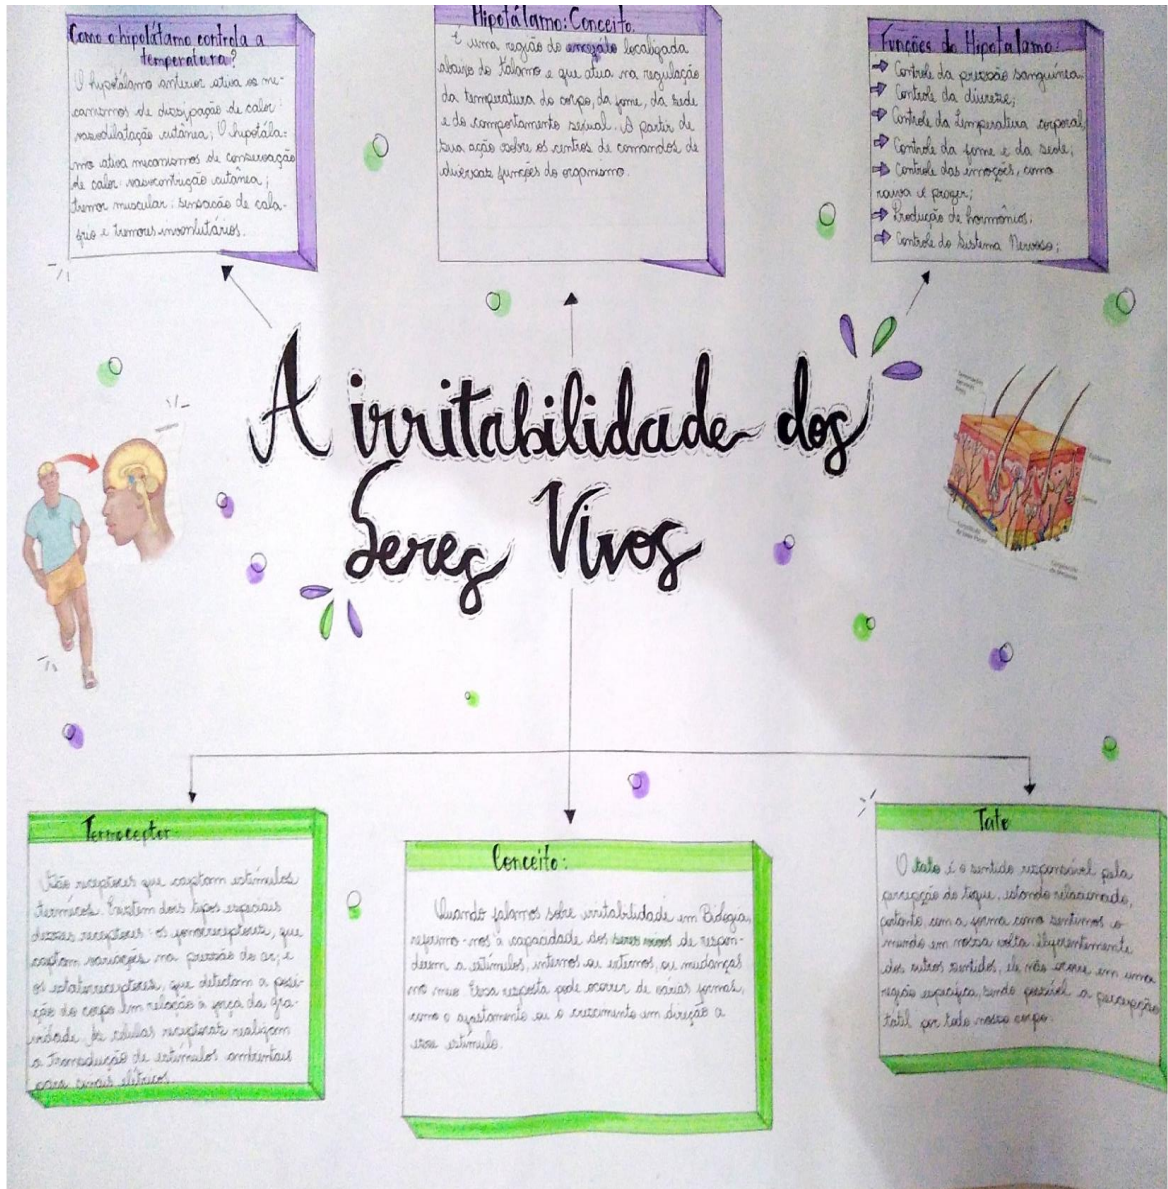 Como o hipotálamo controla a
temperatura?
O hipotálamo anterior ativa os me-
canismos de dissipação de calor:
vasodilatação cutânea; O hipotála-
mo ativa mecanismos de conservação
de calor: vasocontrução cutânea;
tremor muscular; sensação de cala-
frio e tremores involutários.
Hipotálamo: Conceito.
É uma região do encegálo localizada
abaixo do tálamo e que atua na regulação
da temperatura do corpo, da fome, da sede
e do comportamento sexual. A partir de
sua ação sobre os centros de comandos de
diversas funções do organismo.
Funções do Hipotálamo:
Controle da pressão sanguínea;
Controle da diurese;
Controle da Temperatura corporal;
Controle da fome e da sede;
Controle das emoções, como
raiva e prazer;
Produção de hormônios;
Controle do Sistema Nervoso;
A irritabilidade dos
Seres Vivos
Termoceptor:
São receptores que captam estímulos
térmicos. Existem dois tipos especiais
desses receptores: os fonorreceptores, que
captam variações na pressão do ar; e
os estatorreceptores, que detectam a posi-
ção do corpo em relação à força da gra-
vidade. As células receptoras realizam
a transdução de estímulos ambientais
para sinais elétricos.
Conceito:
Quando falamos sobre irritabilidade em Biologia,
referimo-nos à capacidade dos seres vivos de respon-
derem a estímulos, internos ou externos, ou mudanças
no meio. Essa resposta pode ocorrer de várias formas,
como o ajustamento ou o crescimento em direção a
esse estímulo.
Tato
O tato é o sentido responsável pela
percepção do toque, estando relacionado,
portanto, com a forma como sentimos o
mundo em nossa volta. Diferentemente
dos outros sentidos, ele não ocorre em uma
região específica, sendo possível a percepção
tátil por todo nosso corpo.